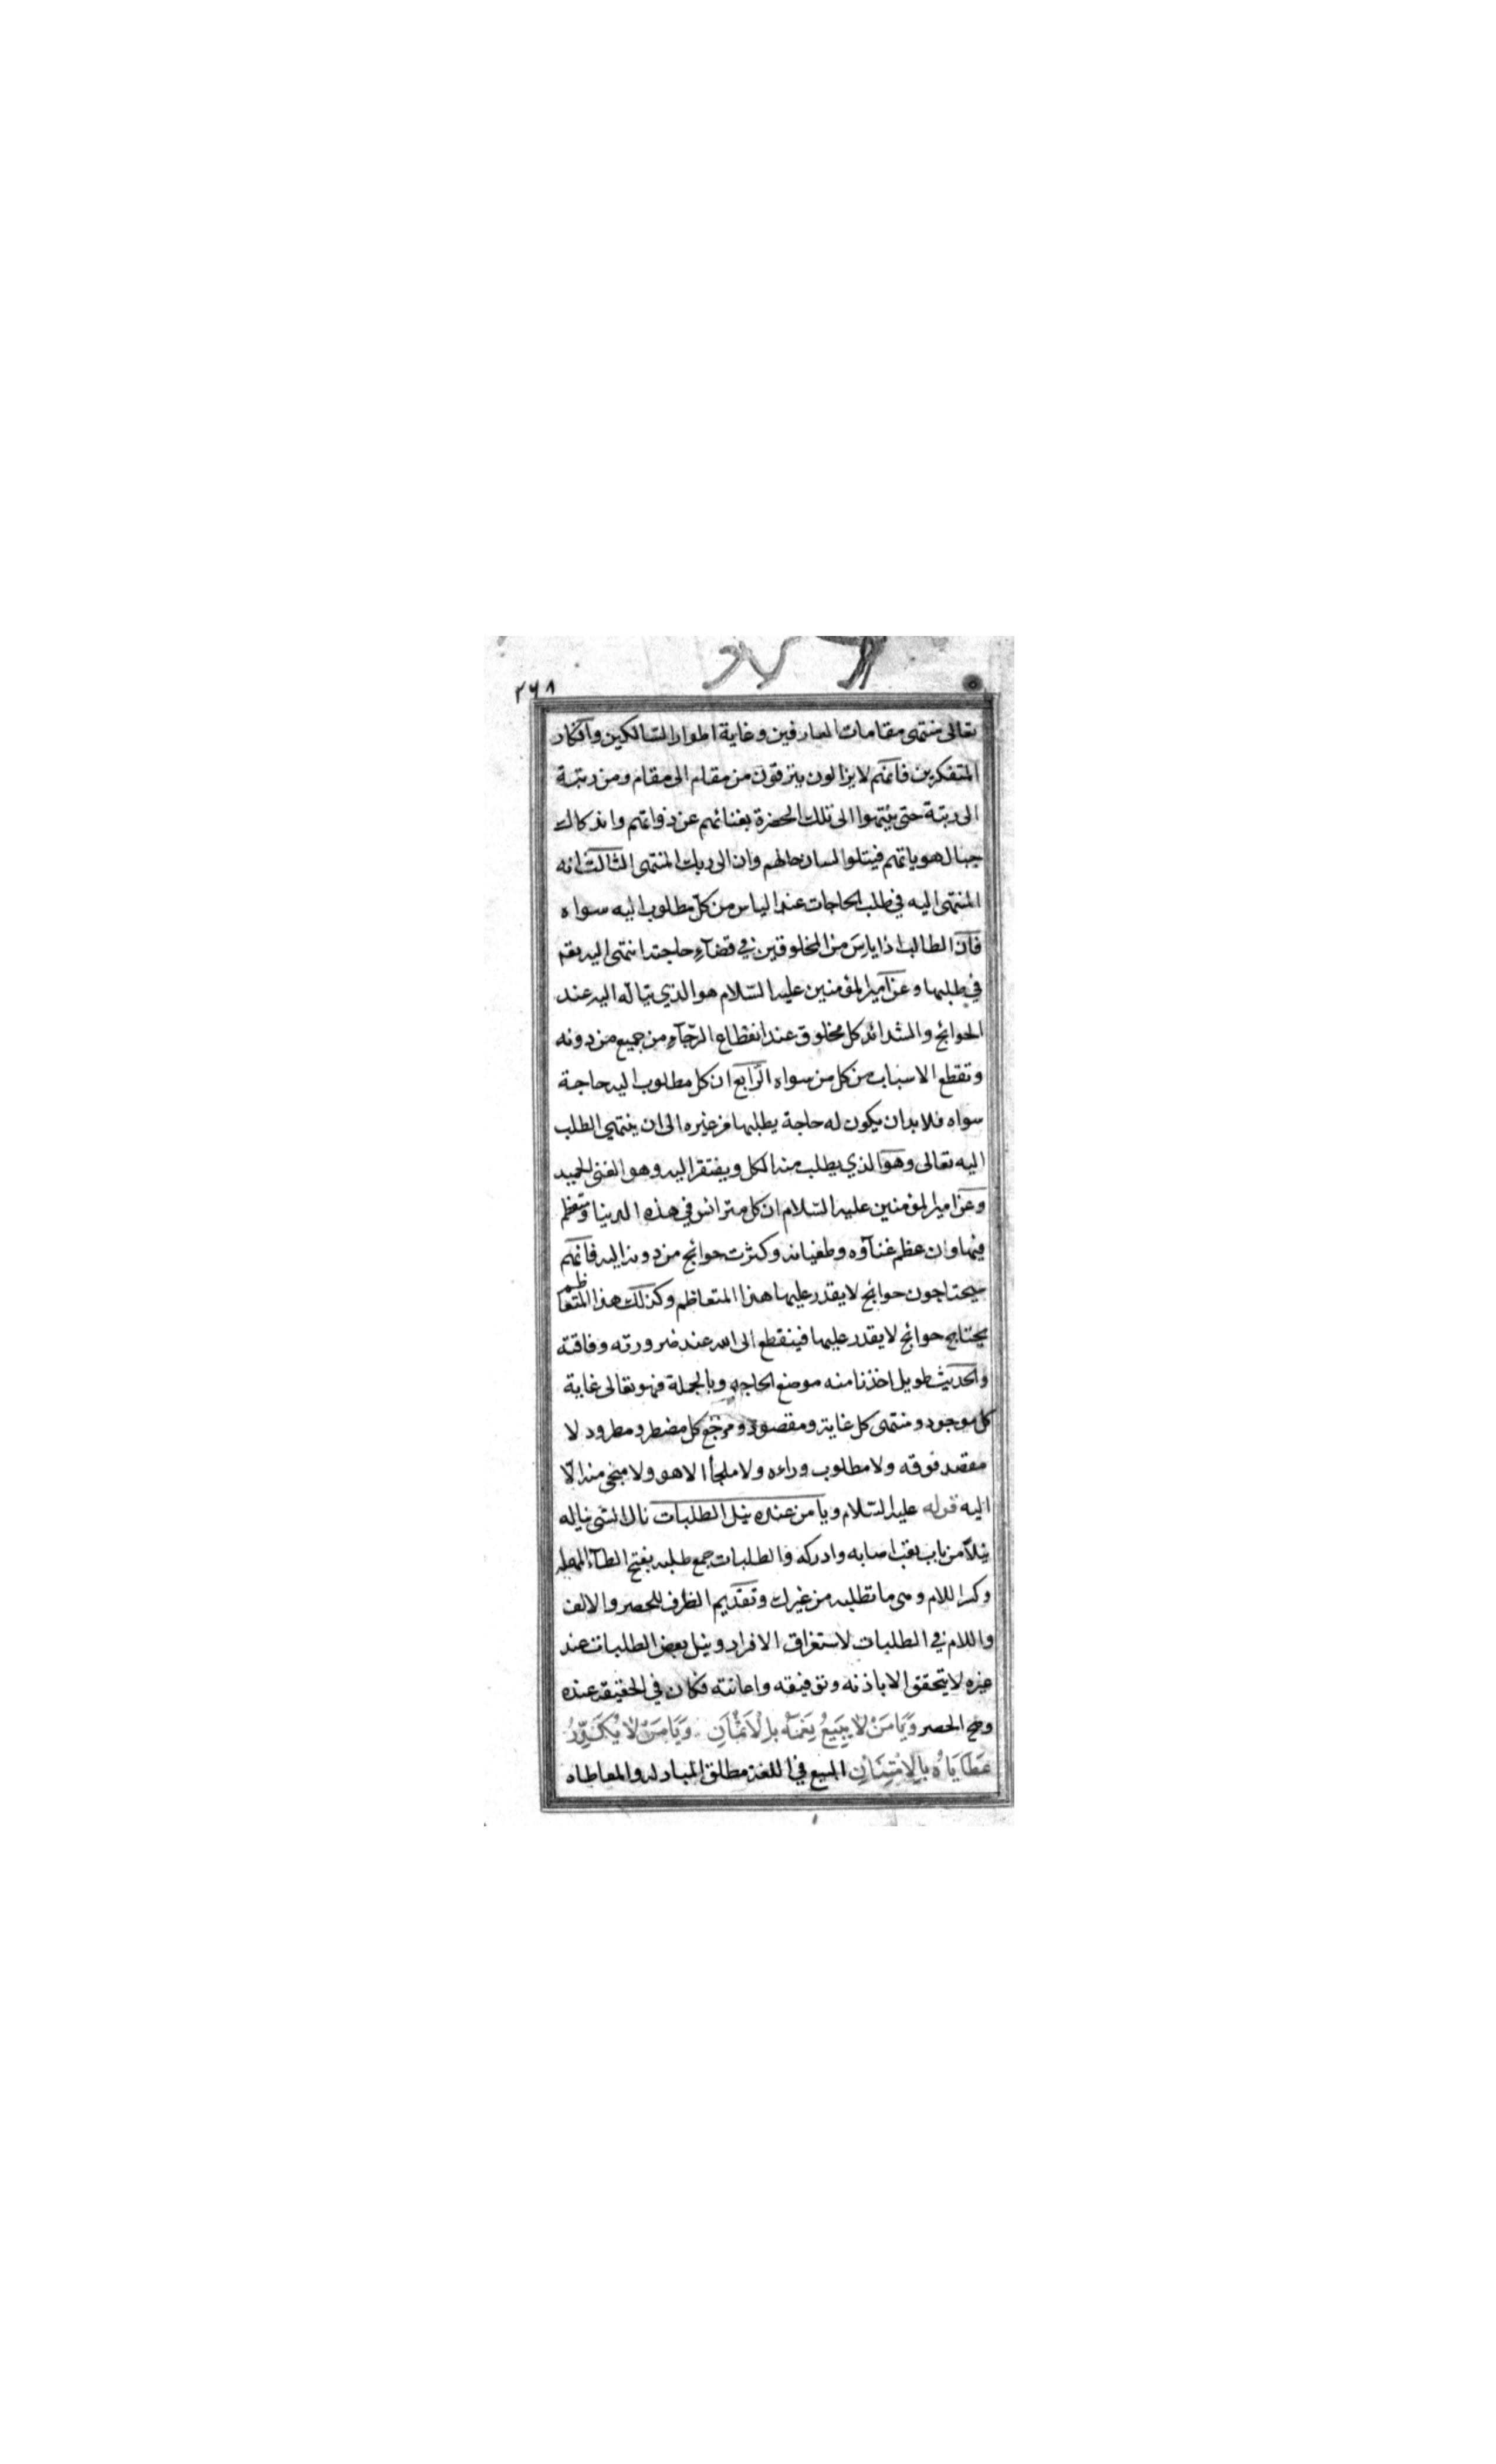 ٢٦٨
تعالى منتهى مقامات العارفين وغاية اطوار السّالكين وافكار
المتفكرين فانّهم لا يزالون يترقون من مقام الى مقام ومن رتبة
الى رتبة حتى ينتهوا الى تلك الحضرة بفنائهم عن ذواتهم واندكاك
جبال هوياتهم فيتلوا لسان حالهم وان الى ربك المنتهى الثالث انه
المنتهى اليه في طلب الحاجات عند الياس من كلّ مطلوب اليه سواه
فانّ الطالب اذا يايس من المخلوقين في قضآء حاجته انتهى اليه تعه
في طلبها وعن امير المؤمنين عليه السّلام هو الذي يتالّه اليه عند
الحوائج والشدائد كل مخلوق عند انقطاع الرّجآء من جميع من دونه
وتقطع الاسباب من كل من سواه الرّابع ان كل مطلوب اليه حاجة
سواه فلا بد ان يكون له حاجة يطلبها من غيره الى ان ينتهي الطلب
اليه تعالى وهو الذي يطلب منه الكل ويفتقر اليه وهو الغنى الحميد
وعن امير المؤمنين عليه السّلام ان كل مترائس في هذه الدنيا ومتعظم
فيها وان عظم غنآوه وطغيانه وكثرت حوائج من دونه اليه فانّهم
سيحتاجون حوائج لا يقدر عليها هذا المتعاظم وكذلك هذا المتعاظم
يحتاج حوائج لا يقدر عليها فينقطع الى الله عند ضرورته وفاقته
والحديث طويل اخذنا منه موضع الحاجه وبالجملة فهو تعالى غاية
كل موجود ومنتهى كل غاية ومقصود ومرجع كل مضطر ومطرود لا
مقصد فوقه ولا مطلوب وراءه ولا ملجأ الا هو ولا منجى منه الّا
اليه قوله عليه السّلام ويا من عنده نيل الطلبات نال الشى يناله
نيلاً من باب تعب اصابه وادركه والطلبات جمع طلبه بفتح الطآء المهمله
وكسر اللام وهى ما تطلبه من غيرك وتقديم الظرف للحصر والالف
واللام في الطلبات لاستغراق الافراد ونيل بعض الطلبات عند
غيره لا يتحقق الا باذنه وتوفيقه واعانته فكان في الحقيقه عنده
وصح الحصر وَيَا مَنْ لَا يَبِيعُ نِعَمَهُ بِالْاَثْمَانِ وَيَا مَنْ لَا يُكَدِّرُ
عَطَايَاهُ بِالِامْتِنَانِ البيع في اللغة مطلق المبادله والمعاطاه